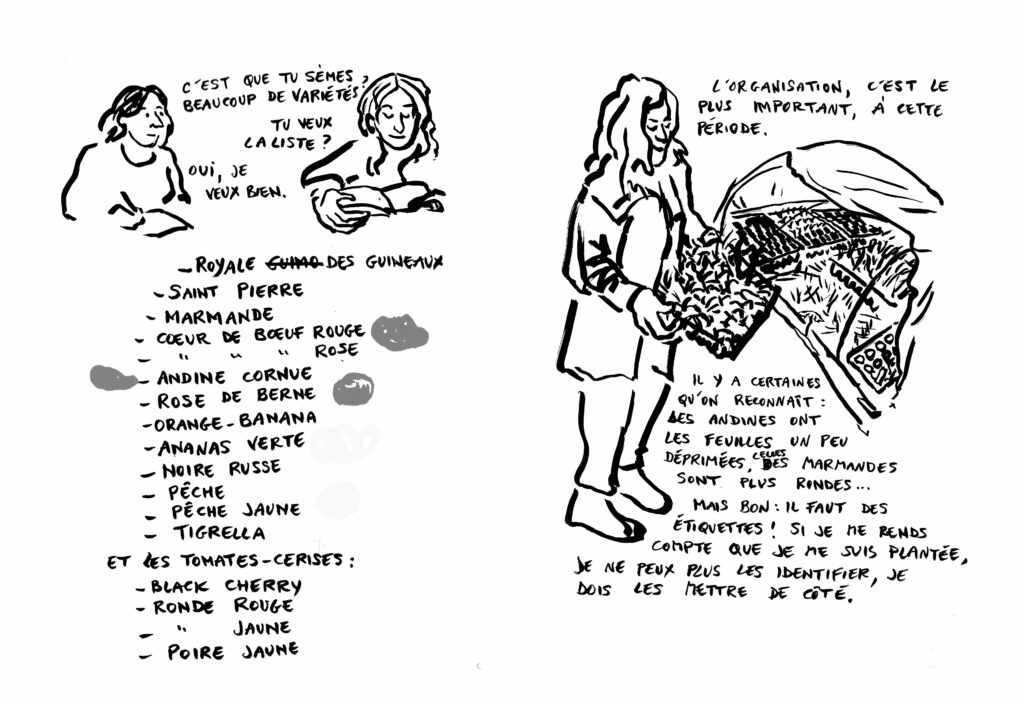 C'EST QUE TU SÈMES
BEAUCOUP DE VARIÉTÉS!
TU VEUX
LA LISTE?
OUI, JE
VEUX BIEN.
- ROYALE GUIMO DES GUINEAUX
- SAINT PIERRE
- MARMANDE
- COEUR DE BŒUF ROUGE
- " " " ROSE
- ANDINE CORNUE
- ROSE DE BERNE
- ORANGE-BANANA
- ANANAS VERTE
- NOIRE RUSSE
- PÊCHE
- PÊCHE JAUNE
- TIGRELLA
ET LES TOMATES-CERISES:
- BLACK CHERRY
- RONDE ROUGE
- " JAUNE
- POIRE JAUNE
L'ORGANISATION, C'EST LE
PLUS IMPORTANT, À CETTE
PÉRIODE.
IL Y A CERTAINES
QU'ON RECONNAÎT:
LES ANDINES ONT
LES FEUILLES UN PEU
DÉPRIMÉES, CELLES DES MARMANDES
SONT PLUS RONDES...
MAIS BON: IL FAUT DES
ÉTIQUETTES! SI JE ME RENDS
COMPTE QUE JE ME SUIS PLANTÉE,
JE NE PEUX PLUS LES IDENTIFIER, JE
DOIS LES METTRE DE CÔTÉ.